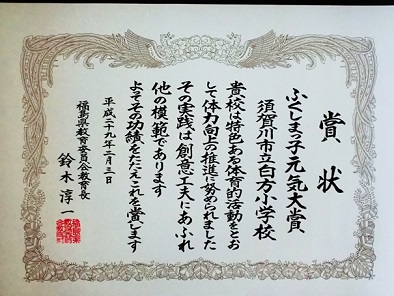 賞状
ふくしまっ子元気大賞
須賀川市立白方小学校
貴校は特色ある体育的活動をとお
して体力向上の推進に努められました
その実践は創意工夫にあふれ
他の模範であります
よってその功績をたたえこれを賞します
平成二十九年二月三日
福島県教育委員会教育長
鈴木淳一